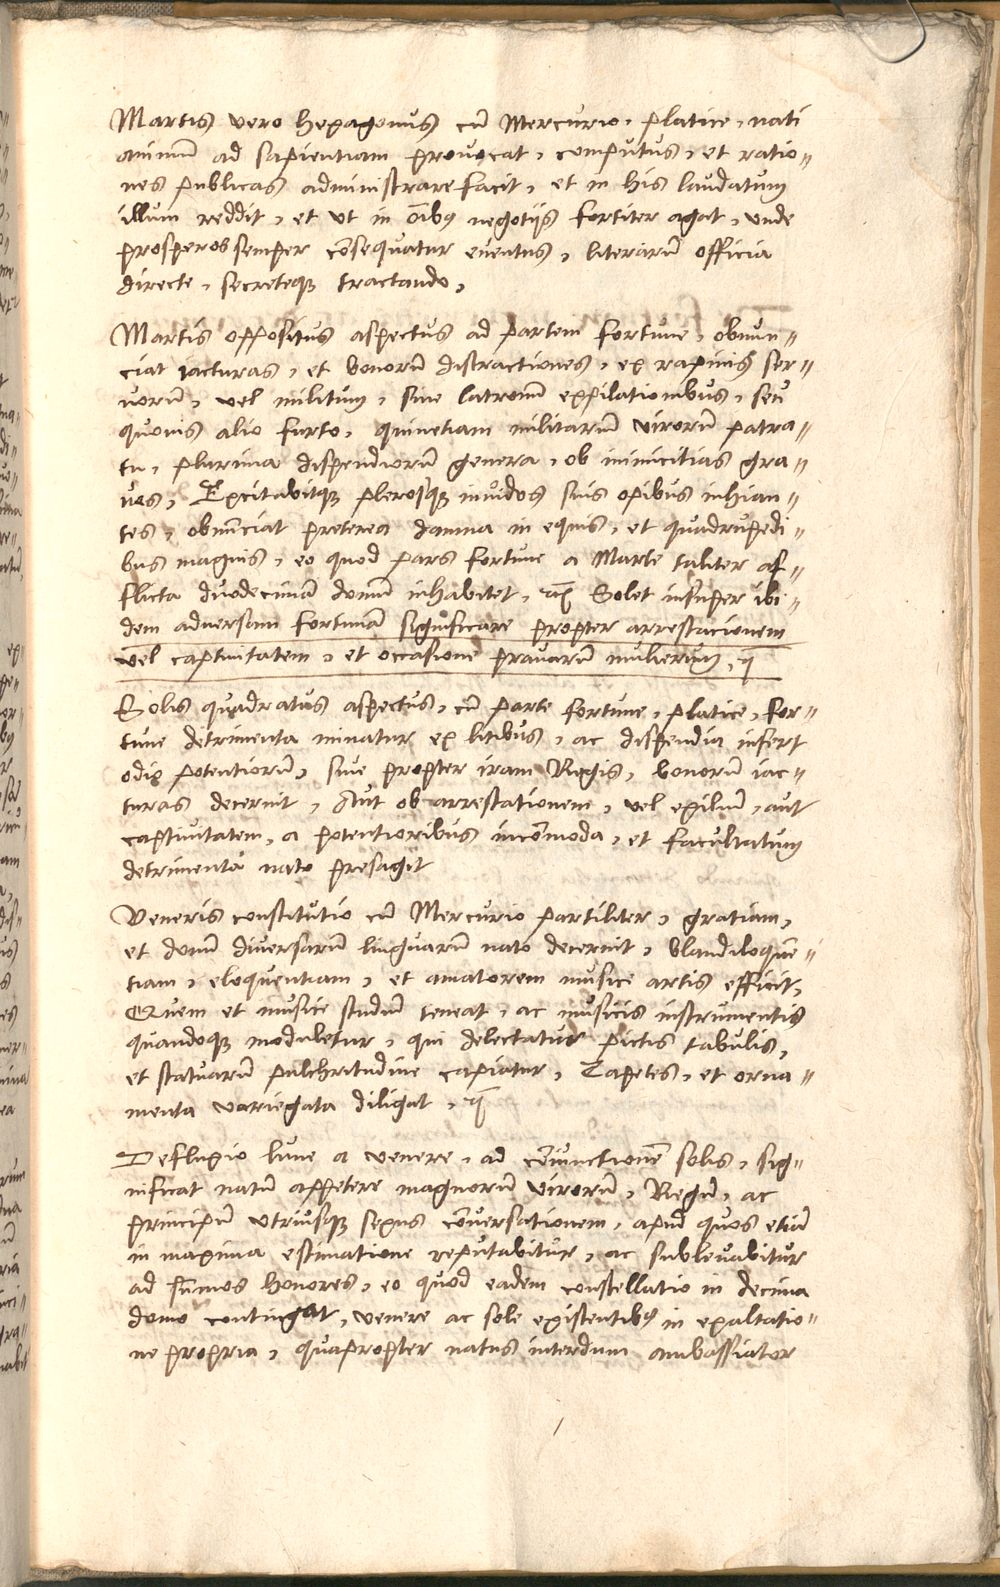 Martis vero hexagonus cũ Mercurio, platice, nati
animũ ad sapientiam provocat, computus, et ratio〃
nes publicas administrare facit, et in his laudatum
illum reddit, et ut in oı̃bꝰ negotijs fortiter agat, unde
prosperos semper cõsequatur eventus, literarũ officia
directe, secreteqꝫ tractando,
Martis oppositus aspectus ad partem fortune, obnun〃
ciat iacturas, et bonorũ distractiones, ex rapinis ser〃
vorũ, vel militum, sive latronũ expilationibus, seu
quovis alio furto, quinetiam militariũ virorũ patra〃
tu, plurima dispendiorũ genera, ob inimicitias gra〃
ves, Excitabitqꝫ plerosqꝫ invidos suis opibus inhian〃
tes, obnũciat preterea damna in equis, et quadrupedi〃
bus magnis, eo quod pars fortune a Marte taliter af〃
flicta duodecimã domũ inhabitet, Solet insuper ibi〃
dem adversam fortunã significare propter arrestacionem
vel captivitatem, et occasione pravarũ mulierum,
Solis quadratus aspectus, cũ parte fortune, platice, for〃
tune detrimenta minatur ex litibus, ac dispendia infert
odio potentiorũ, sive propter iram Regis, bonorũ iac〃
turas decernit, Aut ob arrestationem, vel exiliũ, aut
captivitatem, a potentioribus incõmoda, et facultatum
detrimenta nato presagit
Veneris constitutio cũ Mercurio partiliter, gratiam,
et donũ diversarũ linguarũ nato decernit, blandiloquẽ〃
tiam, eloquentiam, et amatorem musice artis efficit,
Quem et musice studiũ teneat, ac musicis instrumentis
quandoqꝫ moduletur, qui delectatur pictis tabulis,
et statuarũ pulchritudine capiatur, Tapetes, et orna〃
menta variegata diligat,
Defluxio lune a venere, ad cõiunctionẽ solis, sig〃
nificat natũ appetere magnorũ virorũ, Regũ, ac
principũ utriusqꝫ sexus cõversationem, apud quos etiã
in maxima estimatione reputabitur, ac sublevabitur
ad sũmos honores, eo quod eadem constellatio in decima
domo contingat, venere ac sole existentibꝰ in exaltatio〃
ne propria, quapropter natus interdum ambassiator